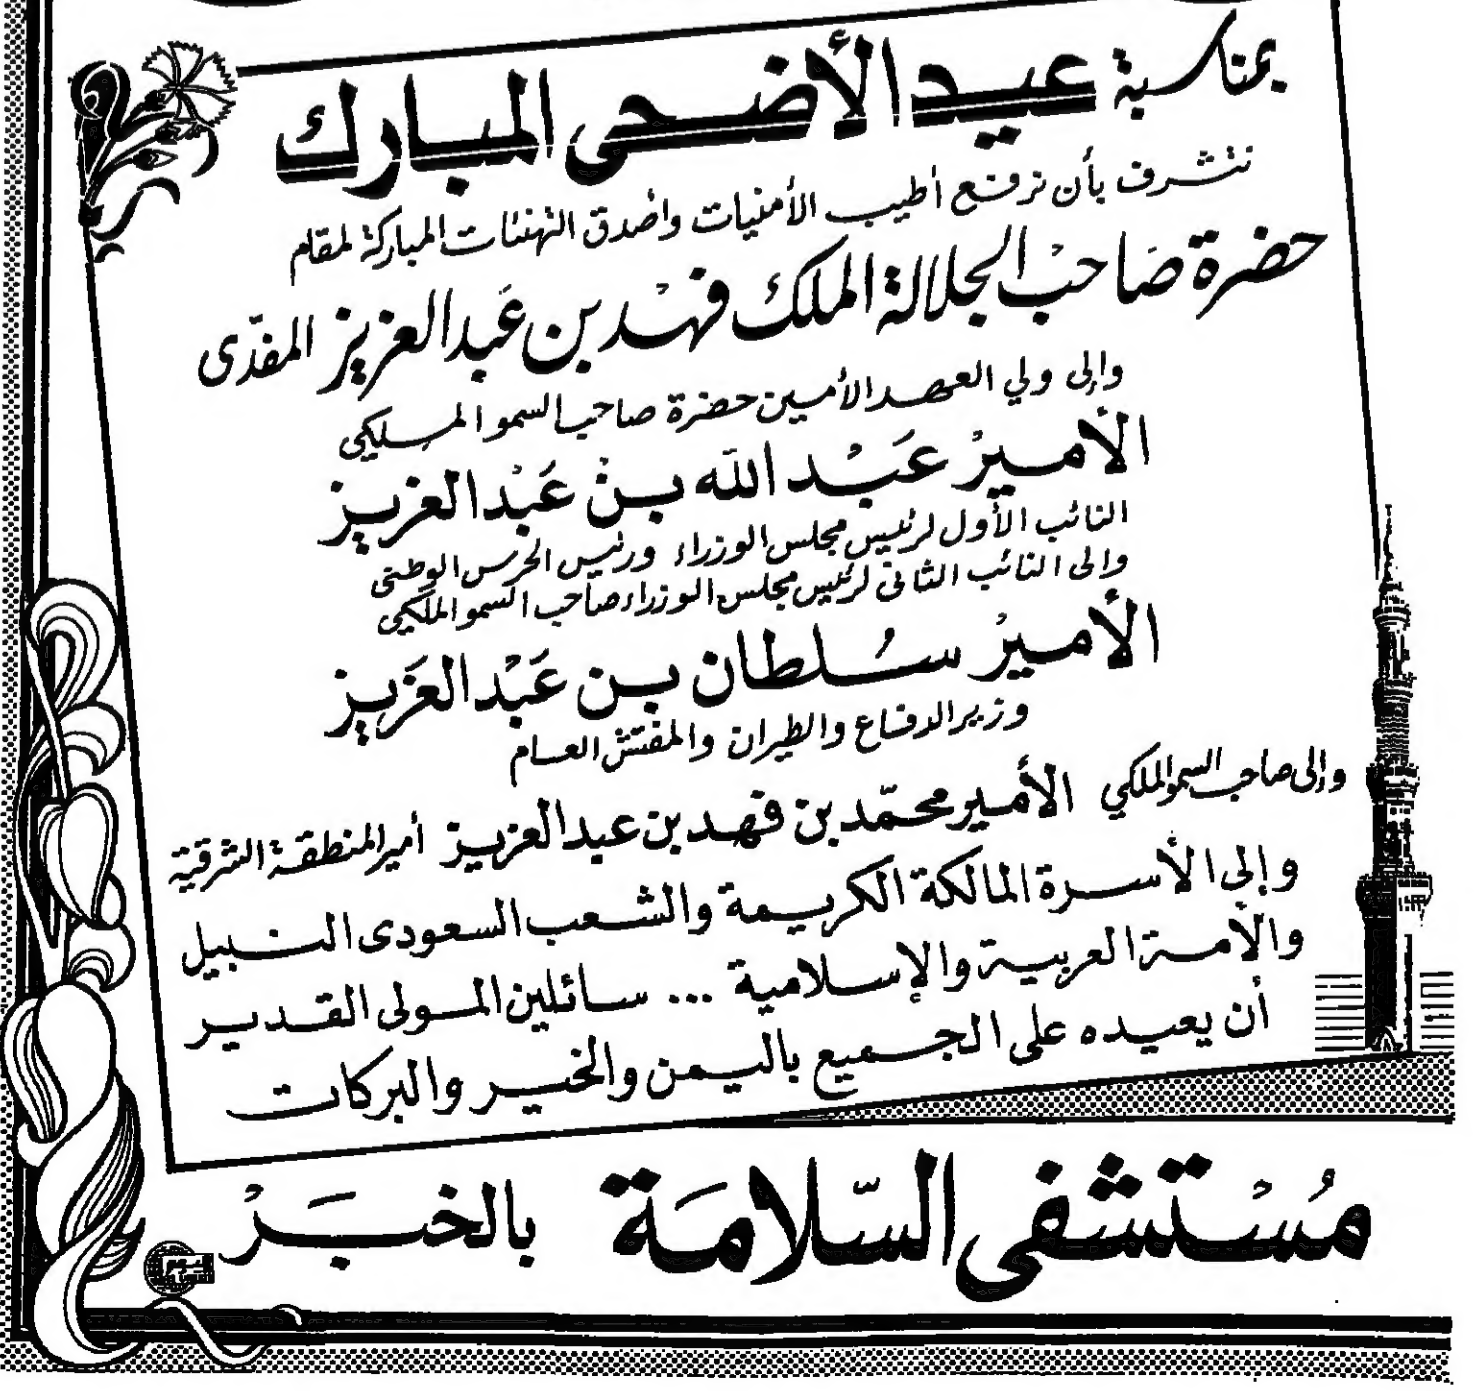 بمناسبة عيد الأضحى المبارك
نتشرف بأن نرفع أطيب الأمنيات وأصدق التهنئات المباركة لمقام
حضرة صَاحبْ الجلالة الملك فهْد بن عَبد العزيز المفدّى
وإلى ولي العهد الأمين حضرة صاحب السمو الملكي
الأميرُ عَبْد الله بنْ عَبْد العزيز
النائب الأول لرئيس مجلس الوزراء ورئيس الحرس الوطنى
وإلى النائب الثانى لرئيس مجلس الوزراء صاحب السمو الملكي
الأميرُ سُلطان بن عَبْد العَزيز
وزير الدفاع والطيران والمفتش العام
وإلى صاحب السمو الملكي الأمير محمّد بن فهد بن عبد العزيز أمير المنطقة الشرقية
وإلى الأسرة المالكة الكريمة والشعب السعودى النبيل
والأمة العربية والإسلامية ... سائلين المولى القدير
أن يعيده على الجميع باليمن والخير والبركات
مُسْتشفى السّلامَة بالخبَرْ